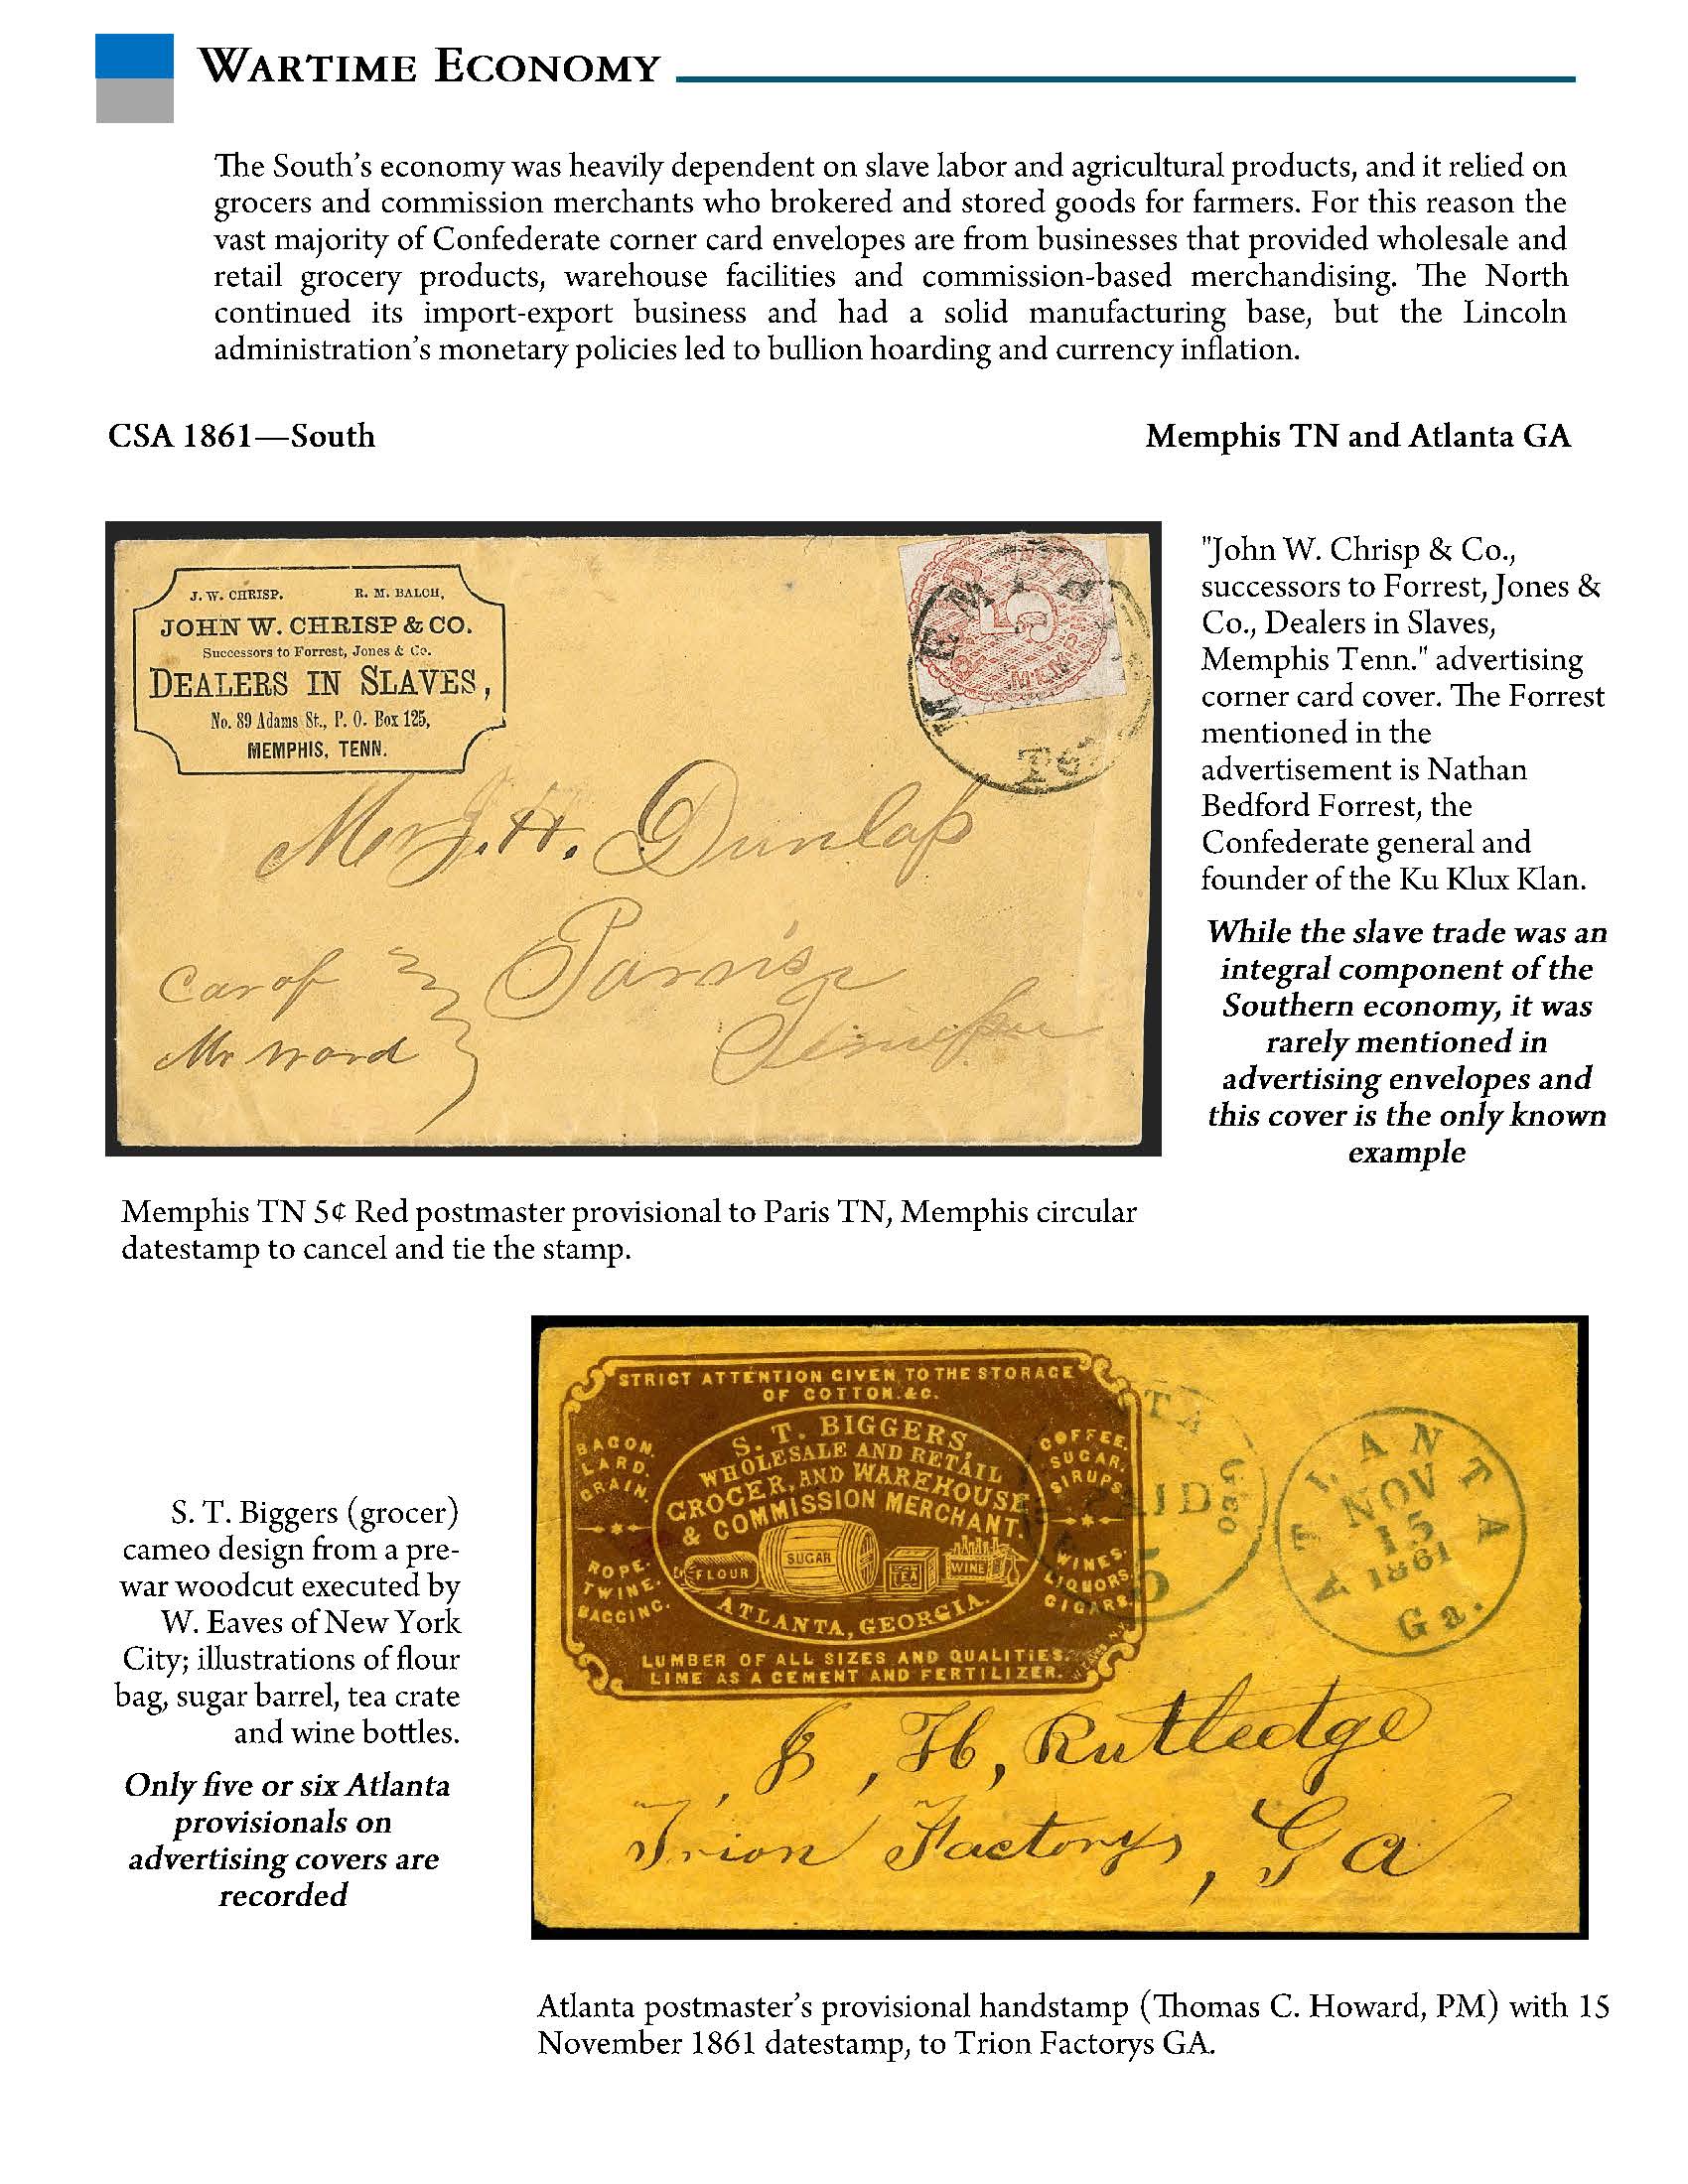 WARTIME ECONOMY
The South's economy was heavily dependent on slave labor and agricultural products, and it relied on
grocers and commission merchants who brokered and stored goods for farmers. For this reason the
vast majority of Confederate corner card envelopes are from businesses that provided wholesale and
retail grocery products, warehouse facilities and commission-based merchandising. The North
continued its import-export business and had a solid manufacturing base, but the Lincoln
administration's monetary policies led to bullion hoarding and currency inflation.
CSA 1861—South
Memphis TN and Atlanta GA
J. W. CHRISP. R. M. BALCH,
JOHN W. CHRISP & CO.
Successors to Forrest, Jones & Co.
DEALERS IN SLAVES,
No. 89 Adams St., P. O. Box 125,
MEMPHIS, TENN.
5
MEMP
Mr J. H. Dunlap
Car of
Mr Ward
"John W. Chrisp & Co.,
successors to Forrest, Jones &
Co., Dealers in Slaves,
Memphis Tenn." advertising
corner card cover. The Forrest
mentioned in the
advertisement is Nathan
Bedford Forrest, the
Confederate general and
founder of the Ku Klux Klan.
While the slave trade was an
integral component of the
Southern economy, it was
rarely mentioned in
advertising envelopes and
this cover is the only known
example
Memphis TN 5¢ Red postmaster provisional to Paris TN, Memphis circular
datestamp to cancel and tie the stamp.
S. T. Biggers (grocer)
cameo design from a pre-
war woodcut executed by
W. Eaves of New York
City; illustrations of flour
bag, sugar barrel, tea crate
and wine bottles.
Only five or six Atlanta
provisionals on
advertising covers are
recorded
STRICT ATTENTION GIVEN TO THE STORAGE
OF COTTON.&C.
BACON.
LARD.
GRAIN.
S. T. BIGGERS,
WHOLESALE AND RETAIL
GROCER, AND WAREHOUSE
& COMMISSION MERCHANT.
COFFEE.
SUGAR.
SIRUPS.
ROPE.
TWINE.
BAGGING.
FLOUR
SUGAR
TEA
WINE
WINES.
LIQUORS.
CIGARS.
ATLANTA, GEORGIA.
LUMBER OF ALL SIZES AND QUALITIES.
LIME AS A CEMENT AND FERTILIZER.
PAID
5
ATLANTA
NOV
15
1861
Ga.
J, H, Rutledge
Trion Factorys, Ga
Atlanta postmaster's provisional handstamp (Thomas C. Howard, PM) with 15
November 1861 datestamp, to Trion Factorys GA.